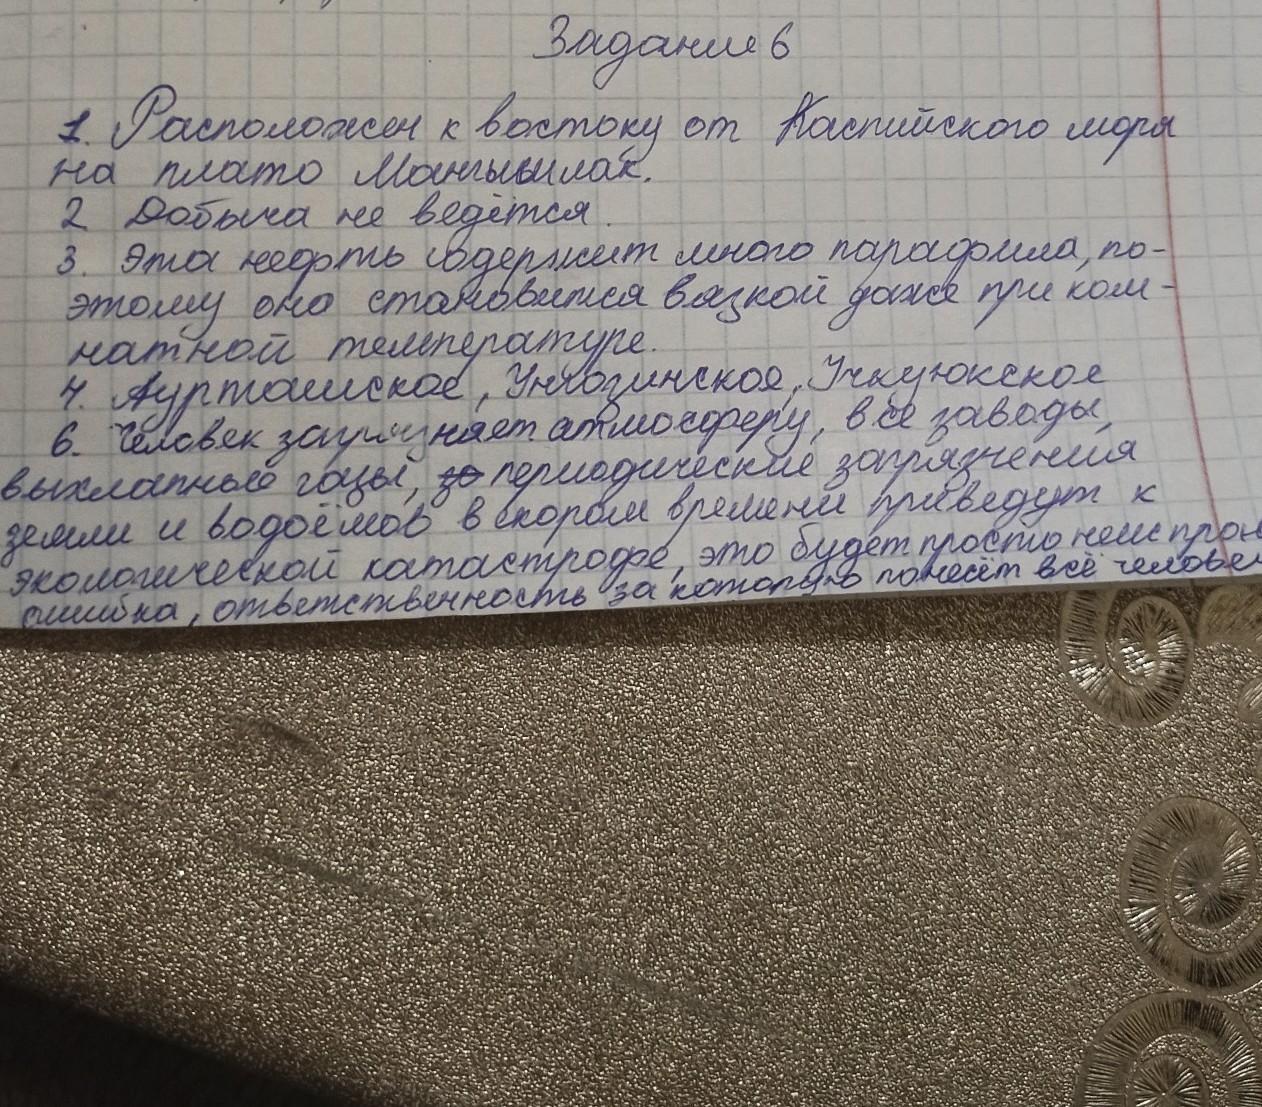 Задание 6
1. Расположен к востоку от Каспийского моря
на плато Мангышлак.
2 Добыча не ведётся.
3. Эта нефть содержит много парафина, по-
этому она становится вязкой даже при ком-
натной температуре.
4. Аурташское, Учкюкское
6. Человек загрязняет атмосферу, все заводы,
выхлапные газы, периодические загрязнения
земли и водоёмов в скором времени приведут к
экологической катастрофе, это будет просто неиспрон
ошибка, ответственность за которую понесёт всё человеч